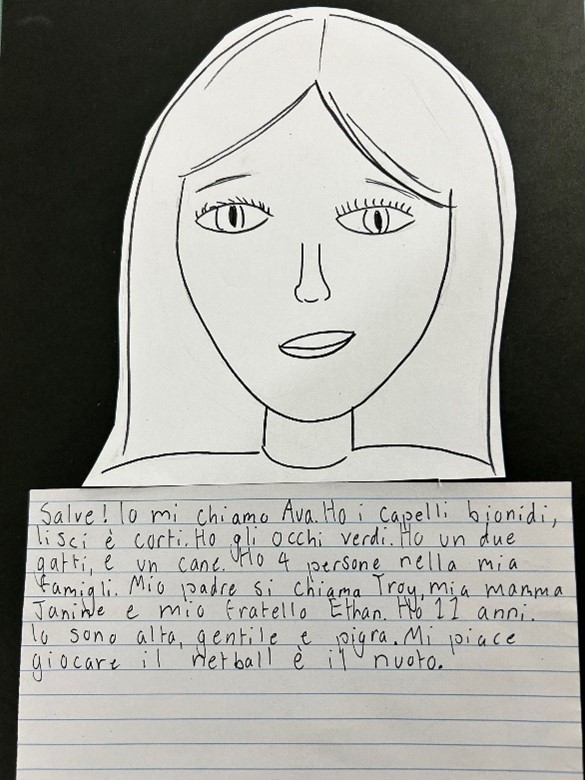 Salve! Io mi chiamo Ava. Ho i capelli bionidi,
lisci è corti. Ho gli occhi verdi. Ho un due
gatti, e un cane. Ho 4 persone nella mia
famigli. Mio padre si chiama Troy, mia mamma
Janine e mio fratello Ethan. Ho 11 anni.
Io sono alta, gentile e pigra. Mi piace
giocare il netball è il nuoto.